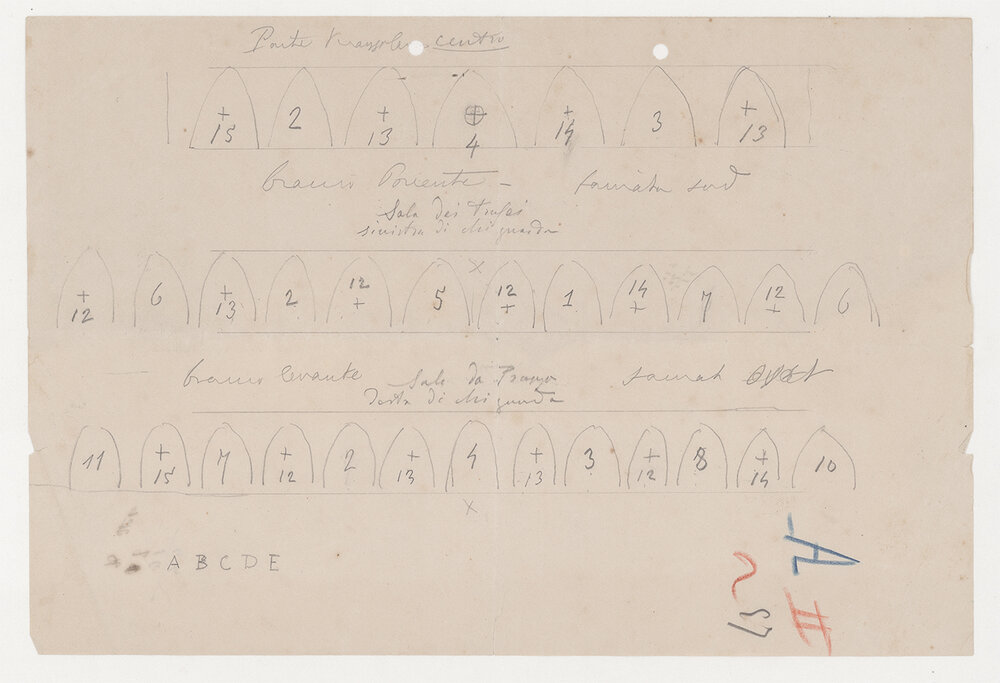 centro
+ 2 + + + 3 +
15 13 4 14 13
braccio Ponente – sud
Sala dei Trofei
sinistra di chi guarda
×
+ 6 + 2 12 5 12 1 14 7 12 6
12 13 + + + +
braccio levante Sala da Pranzo
Destra di chi guarda
11 + 7 + 2 + 4 + 3 + 8 + 10
15 12 13 13 12 14
×
A B C D E
A
II